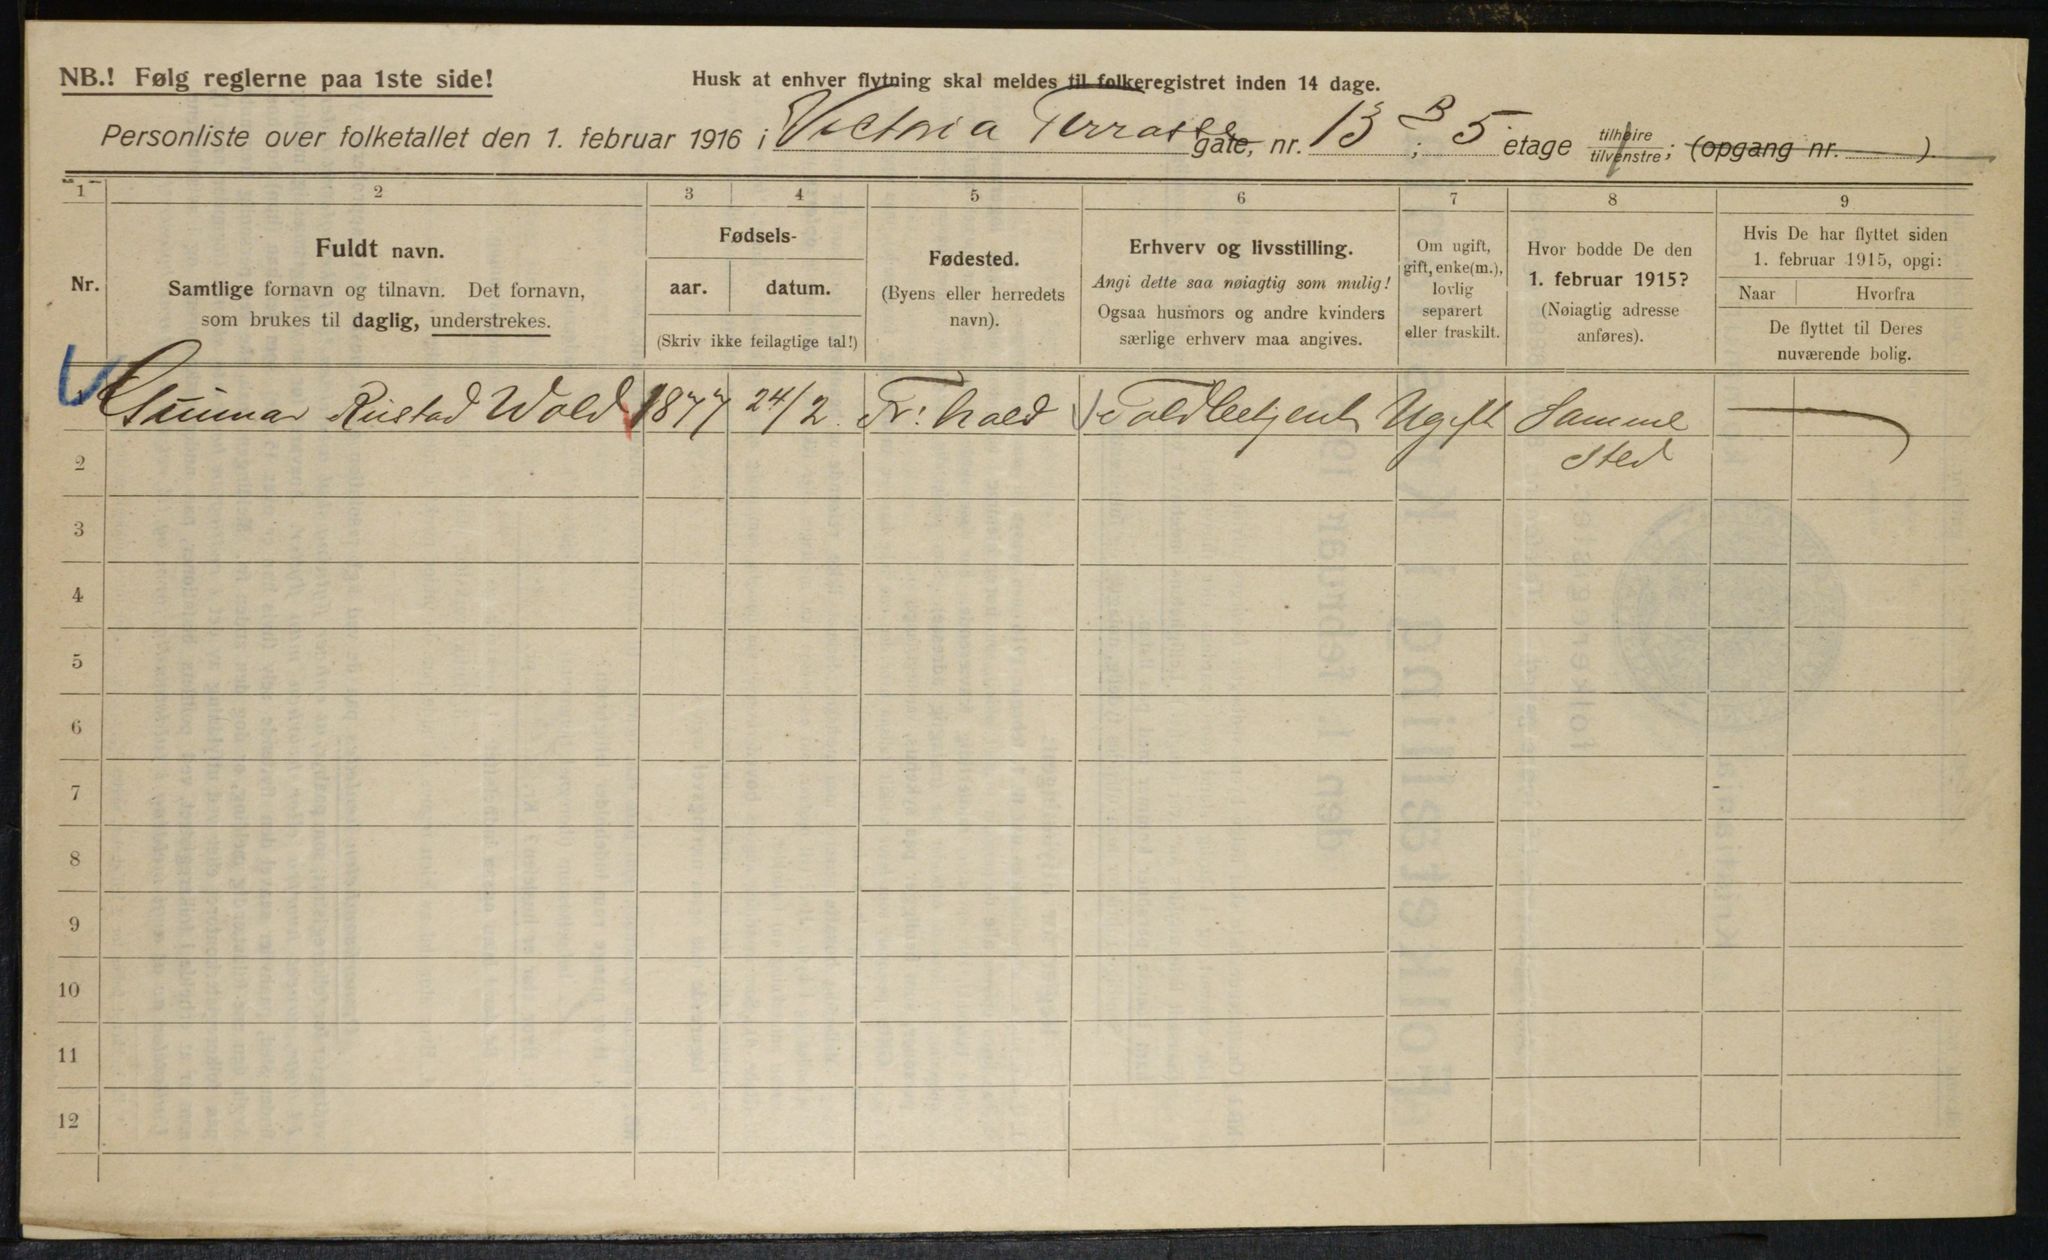 NB.! Følg reglerne paa 1ste side!
Husk at enhver flytning skal meldes til folkeregistret inden 14 dage.
Personliste over folketallet den 1. februar 1916 i Victoria Terrasse gate, nr. 13 B; 5 etage tilhøire tilvenstre; (opgang nr. )
1 2 3 4 5 6 7 8 9
Nr.
Fuldt navn.
Samtlige fornavn og tilnavn. Det fornavn,
som brukes til daglig, understrekes.
Fødsels-
aar. datum.
(Skriv ikke feilagtige tal!)
Fødested.
(Byens eller herredets
navn).
Erhverv og livsstilling.
Angi dette saa nøiagtig som mulig!
Ogsaa husmors og andre kvinders
særlige erhverv maa angives.
Om ugift,
gift, enke(m.),
lovlig
separert
eller fraskilt.
Hvor bodde De den
1. februar 1915?
(Nøiagtig adresse
anføres).
Hvis De har flyttet siden
1. februar 1915, opgi:
Naar Hvorfra
De flyttet til Deres
nuværende bolig.
Gunnar Rustad Wold 1877 24/2 Fr: hald Toldbetjent Ugift Samme
sted
2
3
4
5
6
7
8
9
10
11
12